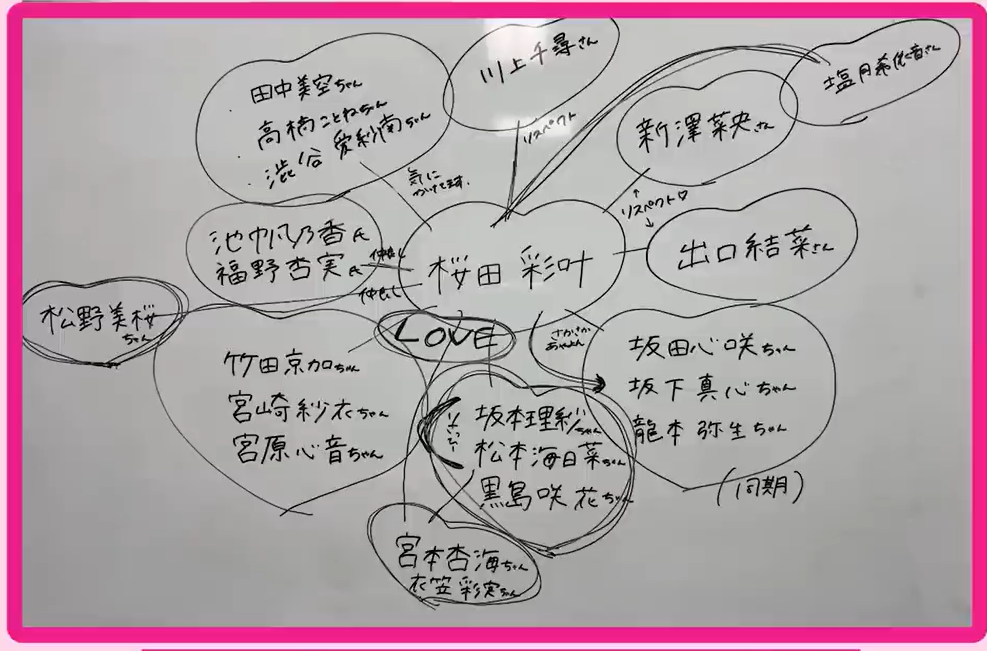 田中美空ちゃん
高橋ことねちゃん
渋谷愛紗南ちゃん
川上千尋さん
塩月希依音さん
新澤菜央さん
リスペクト
気に
かけてます。
リスペクト
池帆乃香氏
福野杏実氏
仲良し
仲良し
桜田彩叶
出口結菜さん
松野美桜
ちゃん
LOVE
竹田京加ちゃん
宮崎紗衣ちゃん
宮原心音ちゃん
坂田心咲ちゃん
坂下真心ちゃん
龍本弥生ちゃん
(同期)
坂本理紗ちゃん
松本海日菜ちゃん
黒島咲花ちゃん
宮本杏海ちゃん
衣笠彩実ちゃん